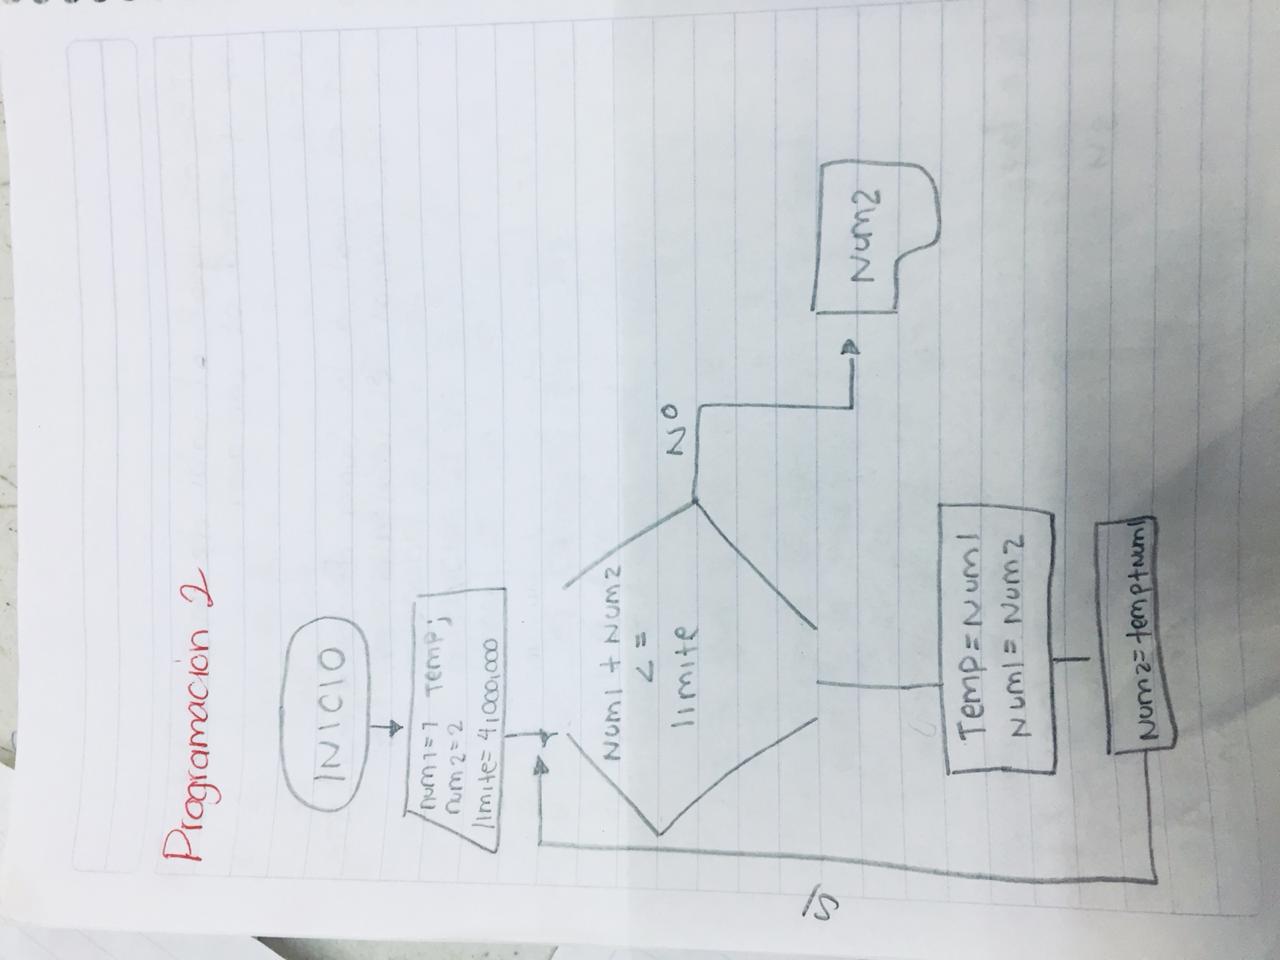 Programacion 2
INICIO
num1=1 Temp;
num2=2
limite=4,000,000
Num1+Num2
<=
limite
NO
Num2
Temp=Num1
Num1=Num2
Num2=temp+Num1
SI